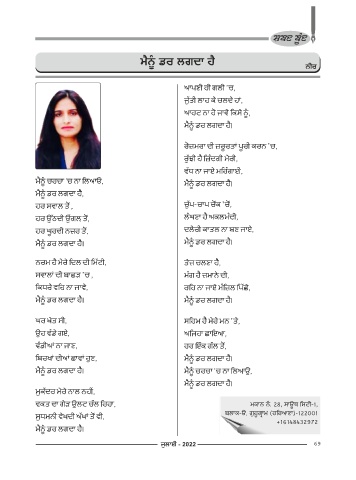 ਸ਼ਬਦ ਬੂੰਦ
ਮੈਨੂੰ ਡਰ ਲਗਦਾ ਹੈ
ਨੀਰੂ
ਮੈਨੂੰ ਚਰਚਾ 'ਚ ਨਾ ਲਿਆਓ,
ਮੈਨੂੰ ਡਰ ਲਗਦਾ ਹੈ,
ਹਰ ਸਵਾਲ ਤੋਂ ,
ਹਰ ਉੱਠਦੀ ਉਂਗਲ ਤੋਂ,
ਹਰ ਘੂਰਦੀ ਨਜ਼ਰ ਤੋਂ,
ਮੈਨੂੰ ਡਰ ਲਗਦਾ ਹੈ।
ਨਰਮ ਹੈ ਮੇਰੇ ਦਿਲ ਦੀ ਮਿੱਟੀ,
ਸਵਾਲਾਂ ਦੀ ਬਾਛੜ 'ਚ ,
ਕਿਧਰੇ ਵਹਿ ਨਾ ਜਾਵੇ,
ਮੈਨੂੰ ਡਰ ਲਗਦਾ ਹੈ।
ਘਰ ਖੇਤ ਸੀ,
ਉਹ ਵੰਡੇ ਗਏ,
ਵੰਡੀਆਂ ਨਾ ਜਾਣ,
ਬਿਰਖਾਂ ਦੀਆਂ ਛਾਵਾਂ ਹੁਣ,
ਮੈਨੂੰ ਡਰ ਲਗਦਾ ਹੈ।
ਮੁਕੱਦਰ ਮੇਰੇ ਨਾਲ ਨਹੀਂ,
ਵਕਤ ਦਾ ਗੇੜ ਉਲਟ ਚੱਲ ਰਿਹਾ,
ਸੁਧਮਨੀ ਵੇਖਦੀ ਅੱਖਾਂ ਤੋਂ ਵੀ,
ਮੈਨੂੰ ਡਰ ਲਗਦਾ ਹੈ।
ਆਪਣੀ ਹੀ ਗਲੀ 'ਚ,
ਜੁੱਤੀ ਲਾਹ ਕੇ ਚਲਦੇ ਹਾਂ,
ਆਹਟ ਨਾ ਹੋ ਜਾਵੇ ਕਿਸੇ ਨੂੰ,
ਮੈਨੂੰ ਡਰ ਲਗਦਾ ਹੈ।
ਰੋਜ਼ਮਰਾ ਦੀ ਜ਼ਰੂਰਤਾਂ ਪੂਰੀ ਕਰਨ 'ਚ,
ਰੁੱਢੀ ਹੈ ਜ਼ਿੰਦਗੀ ਮੇਰੀ,
ਵੱਧ ਨਾ ਜਾਏ ਮਹਿੰਗਾਈ,
ਮੈਨੂੰ ਡਰ ਲਗਦਾ ਹੈ।
ਚੁੱਪ-ਚਾਪ ਚੌਂਕ 'ਚੋਂ,
ਲੰਘਣਾ ਹੈ ਅਕਲਮੰਦੀ,
ਦਲੇਰੀ ਕਾਤਲ ਨਾ ਬਣ ਜਾਏ,
ਮੈਨੂੰ ਡਰ ਲਗਦਾ ਹੈ।
ਤੇਜ ਚਲਣਾ ਹੈ,
ਮੰਗ ਹੈ ਜ਼ਮਾਨੇ ਦੀ,
ਰਹਿ ਨਾ ਜਾਏ ਮੰਜ਼ਿਲ ਪਿੱਛੇ,
ਮੈਨੂੰ ਡਰ ਲਗਦਾ ਹੈ।
ਸਹਿਮ ਹੈ ਮੇਰੇ ਮਨ 'ਤੇ,
ਅਜਿਹਾ ਛਾਇਆ,
ਹਰ ਇੱਕ ਗੱਲ ਤੋਂ,
ਮੈਨੂੰ ਡਰ ਲਗਦਾ ਹੈ।
ਮੈਨੂੰ ਚਰਚਾ 'ਚ ਨਾ ਲਿਆਉ,
ਮੈਨੂੰ ਡਰ ਲਗਦਾ ਹੈ।
ਮਕਾਨ ਨੰ. 28, ਸਾਊਥ ਸਿਟੀ-1,
ਬਲਾਕ-ਓ, ਗੁਰੂਗ੍ਰਾਮ (ਹਰਿਆਣਾ)-122001
+16148432972
ਜੁਲਾਈ - 2022
69